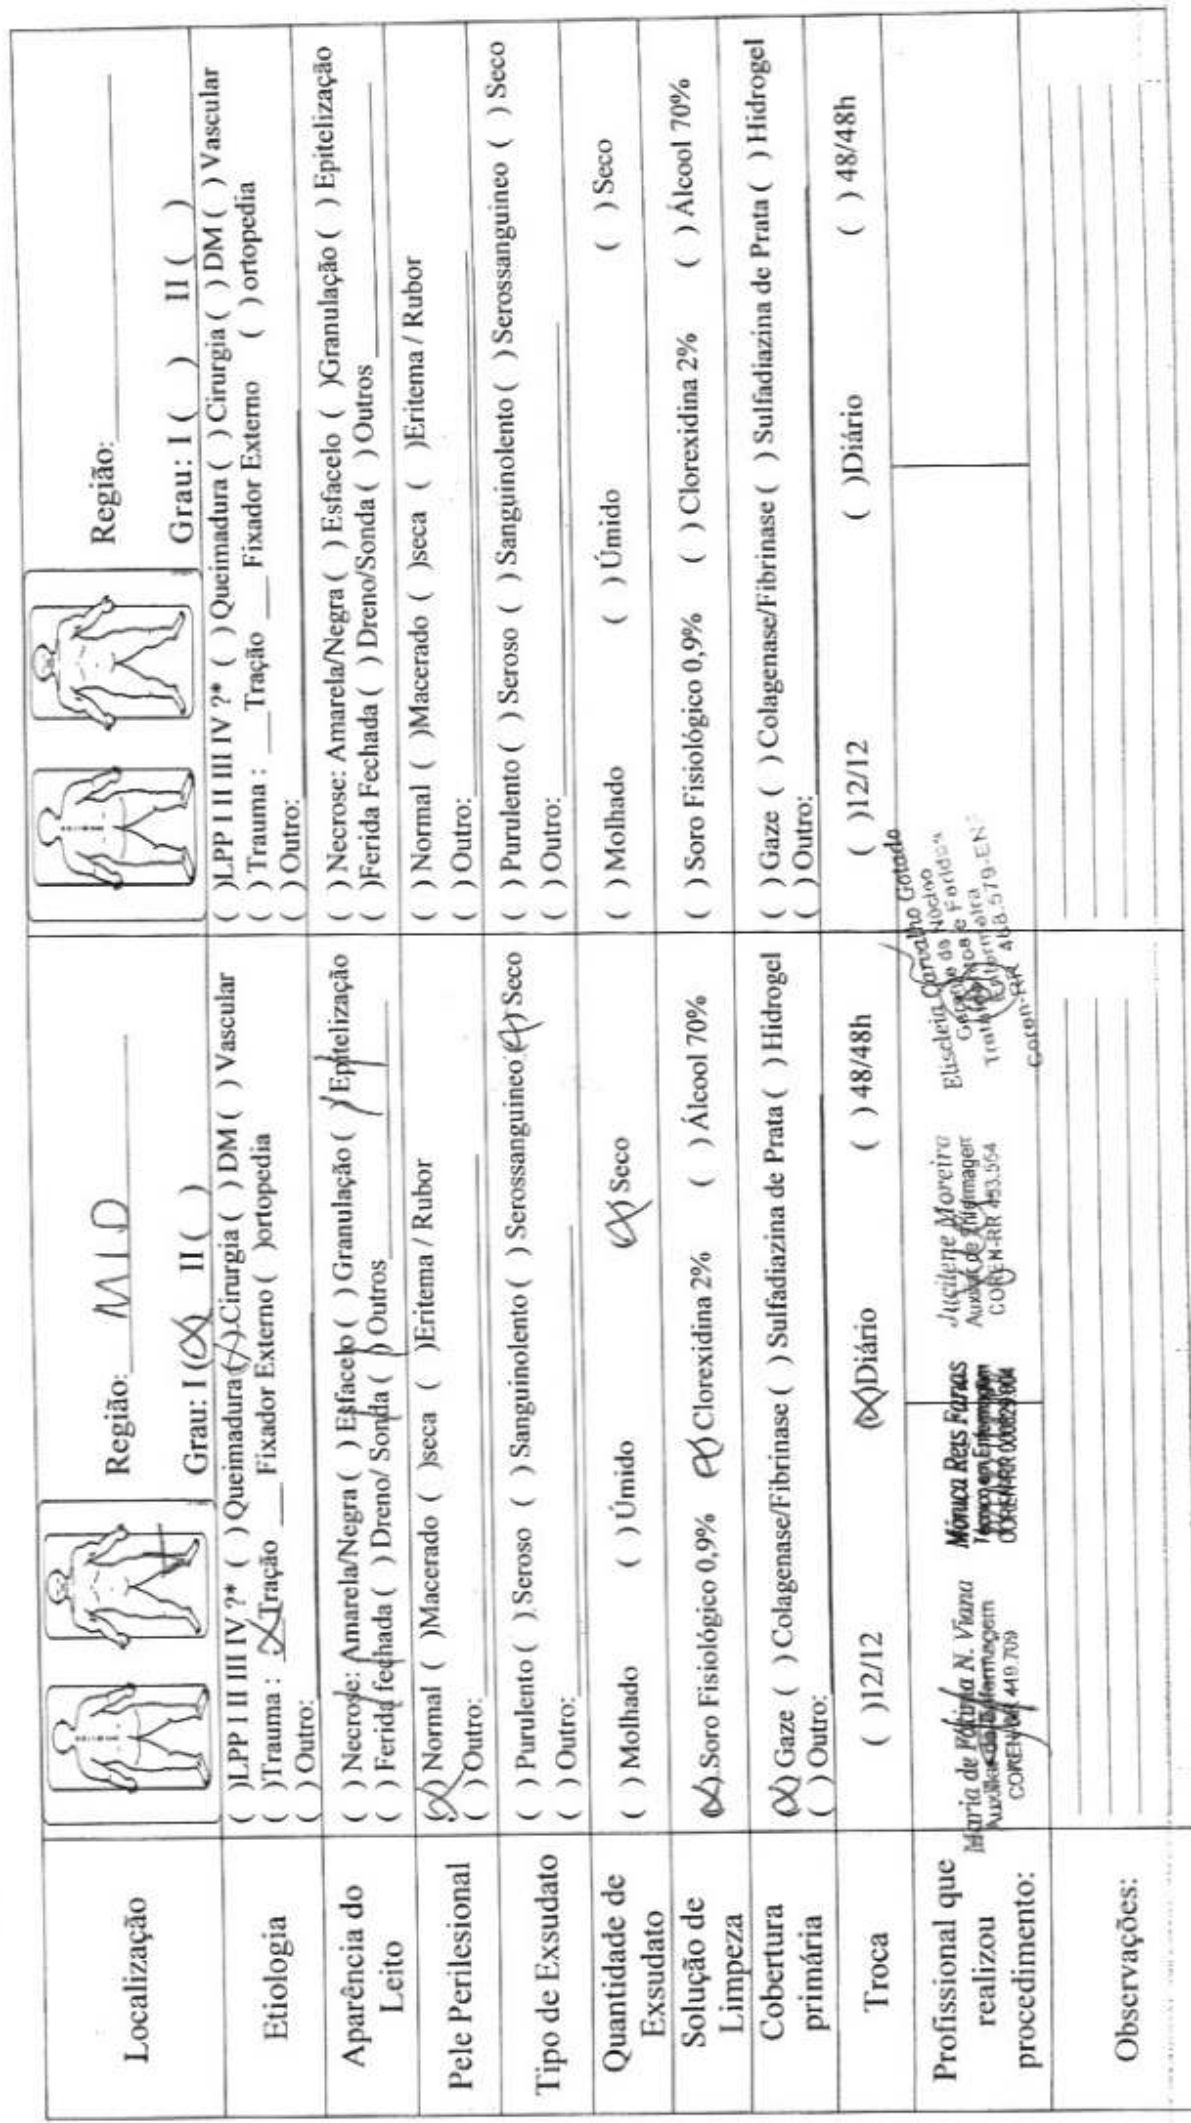 Localização
Região: MID
Grau: I (X) II ( )
Região:
Grau: I ( ) II ( )
Etiologia
( )LPP I II III IV ?* ( ) Queimadura (X) Cirurgia ( ) DM ( ) Vascular
( )Trauma : X Tração ___ Fixador Externo ( )ortopedia
( ) Outro:
( )LPP I II III IV ?* ( ) Queimadura ( ) Cirurgia ( ) DM ( ) Vascular
( ) Trauma : ___Tração ___ Fixador Externo ( ) ortopedia
( ) Outro:
Aparência do
Leito
( ) Necrose: Amarela/Negra ( ) Esfacelo ( ) Granulação ( ) Epitelização
( ) Ferida fechada ( ) Dreno/ Sonda ( ) Outros
( ) Necrose: Amarela/Negra ( ) Esfacelo ( )Granulação ( ) Epitelização
( )Ferida Fechada ( ) Dreno/Sonda ( ) Outros
Pele Perilesional
(X) Normal ( )Macerado ( )seca ( )Eritema / Rubor
( ) Outro:
( ) Normal ( )Macerado ( )seca ( )Eritema / Rubor
( ) Outro:
Tipo de Exsudato
( ) Purulento ( ) Seroso ( ) Sanguinolento ( ) Serossanguineo (X) Seco
( ) Outro:
( ) Purulento ( ) Seroso ( ) Sanguinolento ( ) Serossanguineo ( ) Seco
( ) Outro:
Quantidade de
Exsudato
( ) Molhado ( ) Úmido (X) Seco
( ) Molhado ( ) Úmido ( ) Seco
Solução de
Limpeza
(X) Soro Fisiológico 0,9% (X) Clorexidina 2% ( ) Álcool 70%
( ) Soro Fisiológico 0,9% ( ) Clorexidina 2% ( ) Álcool 70%
Cobertura
primária
(X) Gaze ( ) Colagenase/Fibrinase ( ) Sulfadiazina de Prata ( ) Hidrogel
( ) Outro:
( ) Gaze ( ) Colagenase/Fibrinase ( ) Sulfadiazina de Prata ( ) Hidrogel
( ) Outro:
Troca
( )12/12 (X)Diário ( ) 48/48h
( )12/12 ( )Diário ( ) 48/48h
Profissional que
realizou
procedimento:
Maria de Fátima N. Viana
Auxiliar de Enfermagem
COREN-RR 449.709
Mônica Reis Farias
Técnico em Enfermagem
COREN-RR
Jucilene Moreira
Auxiliar de Enfermagem
COREN-RR 453.554
Eliscleia Carvalho Gotado
Gerente do Núcleo
Feridas
Enfermeira
Coren-RR 468.579-EN
Observações: